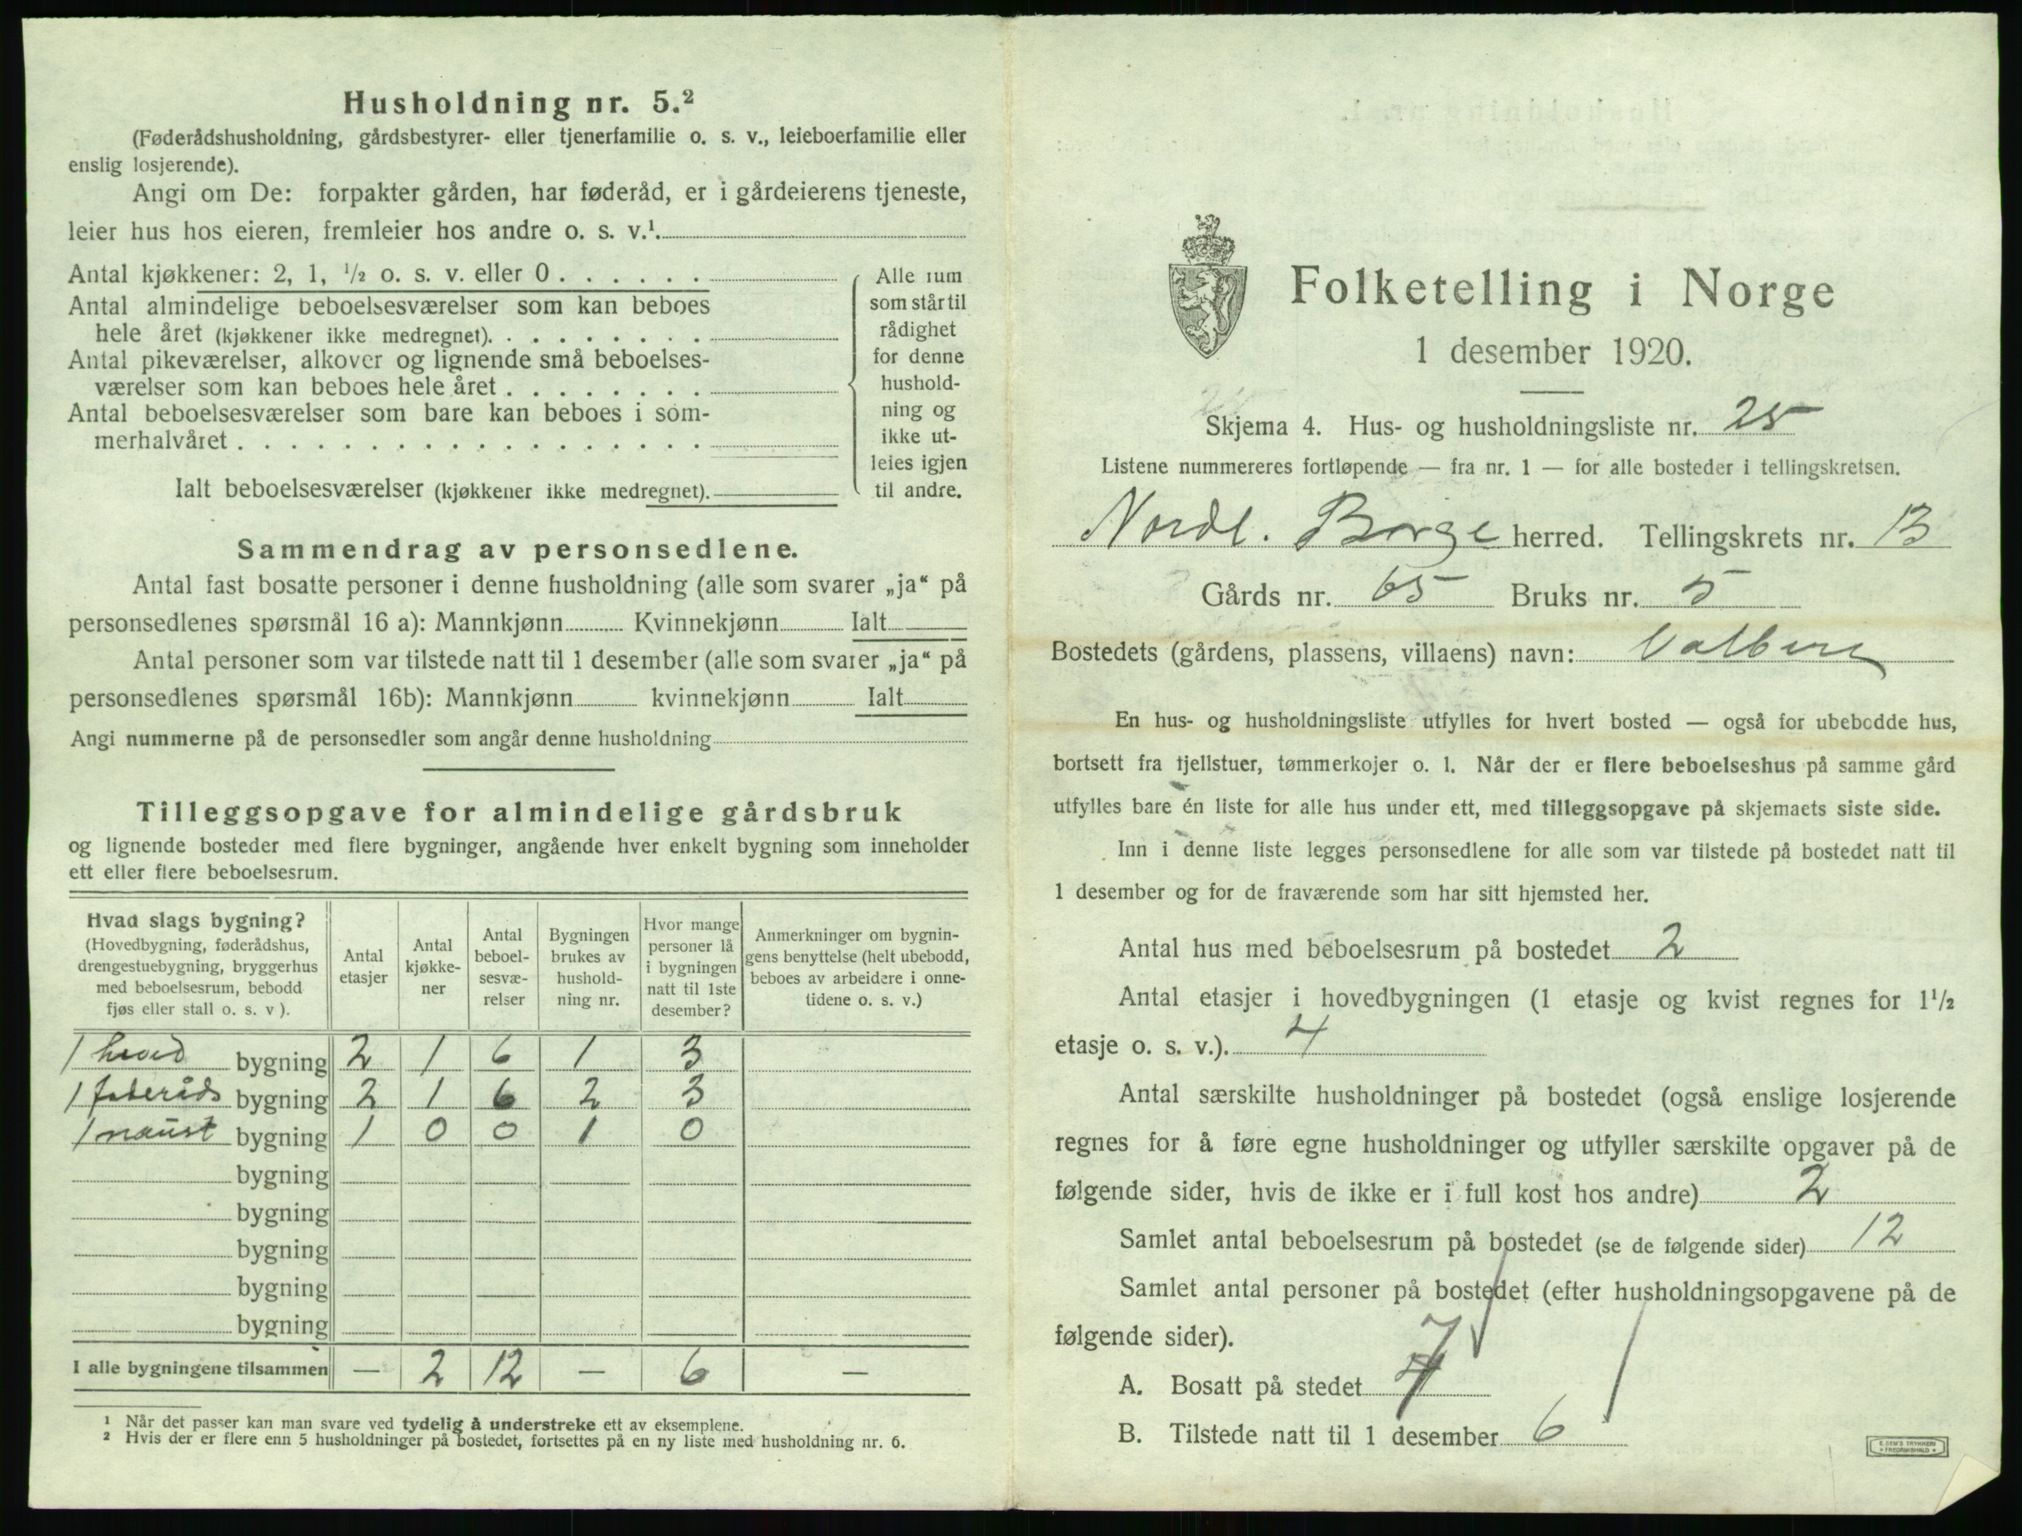 Husholdning nr. 5.²
(Føderådshusholdning, gårdsbestyrer- eller tjenerfamilie o. s. v., leieboerfamilie eller
enslig losjerende).
Angi om De: forpakter gården, har føderåd, er i gårdeierens tjeneste,
leier hus hos eieren, fremleier hos andre o. s. v.¹
Antal kjøkkener: 2, 1, ½ o. s. v. eller 0
Antal almindelige beboelsesværelser som kan beboes
hele året (kjøkkener ikke medregnet)
Antal pikeværelser, alkover og lignende små beboelses-
værelser som kan beboes hele året
Antal beboelsesværelser som bare kan beboes i som-
merhalvåret
Ialt beboelsesværelser (kjøkkener ikke medregnet)
Alle rum
som står til
rådighet
for denne
hushold-
ning og
ikke ut-
leies igjen
til andre.
Sammendrag av personsedlene.
Antal fast bosatte personer i denne husholdning (alle som svarer „ja“ på
personsedlenes spørsmål 16 a): Mannkjønn Kvinnekjønn Ialt
Antal personer som var tilstede natt til 1 desember (alle som svarer „ja“ på
personsedlenes spørsmål 16b): Mannkjønn kvinnekjønn Ialt
Angi nummerne på de personsedler som angår denne husholdning
Tilleggsopgave for almindelige gårdsbruk
og lignende bosteder med flere bygninger, angående hver enkelt bygning som inneholder
ett eller flere beboelsesrum.
Hvad slags bygning?
(Hovedbygning, føderådshus,
drengestuebygning, bryggerhus
med beboelsesrum, bebodd
fjøs eller stall o. s. v ).
Antal
etasjer
Antal
kjøkke-
ner
Antal
beboel-
sesvæ-
relser
Bygningen
brukes av
hushold-
ning nr.
Hvor mange
personer lå
i bygningen
natt til 1ste
desember?
Anmerkninger om bygnin-
gens benyttelse (helt ubebodd,
beboes av arbeidere i onne-
tidene o. s. v.)
1 hoved bygning 2 1 6 1 3
1 føderåds bygning 2 1 6 2 3
1 naust bygning 1 0 0 1 0
bygning
bygning
bygning
bygning
bygning
I alle bygningene tilsammen — 2 12 — 6 —
¹ Når det passer kan man svare ved tydelig å understreke ett av eksemplene.
² Hvis der er flere enn 5 husholdninger på bostedet, fortsettes på en ny liste med husholdning nr. 6.
Folketelling i Norge
1 desember 1920.
Skjema 4. Hus- og husholdningsliste nr. 25
Listene nummereres fortløpende — fra nr. 1 — for alle bosteder i tellingskretsen.
Nordl. Borge herred. Tellingskrets nr. 13
Gårds nr. 65 Bruks nr. 5
Bostedets (gårdens, plassens, villaens) navn: Valberg
En hus- og husholdningsliste utfylles for hvert bosted — også for ubebodde hus,
bortsett fra fjellstuer, tømmerkojer o. l. Når der er flere beboelseshus på samme gård
utfylles bare én liste for alle hus under ett, med tilleggsopgave på skjemaets siste side.
Inn i denne liste legges personsedlene for alle som var tilstede på bostedet natt til
1 desember og for de fraværende som har sitt hjemsted her.
Antal hus med beboelsesrum på bostedet 2
Antal etasjer i hovedbygningen (1 etasje og kvist regnes for 1½
etasje o. s. v.). 4
Antal særskilte husholdninger på bostedet (også enslige losjerende
regnes for å føre egne husholdninger og utfyller særskilte opgaver på de
følgende sider, hvis de ikke er i full kost hos andre) 2
Samlet antal beboelsesrum på bostedet (se de følgende sider) 12
Samlet antal personer på bostedet (efter husholdningsopgavene på de
følgende sider).
A. Bosatt på stedet 7
B. Tilstede natt til 1 desember 6
E. SEM'S TRYKKERI
FREDRIKSHALD